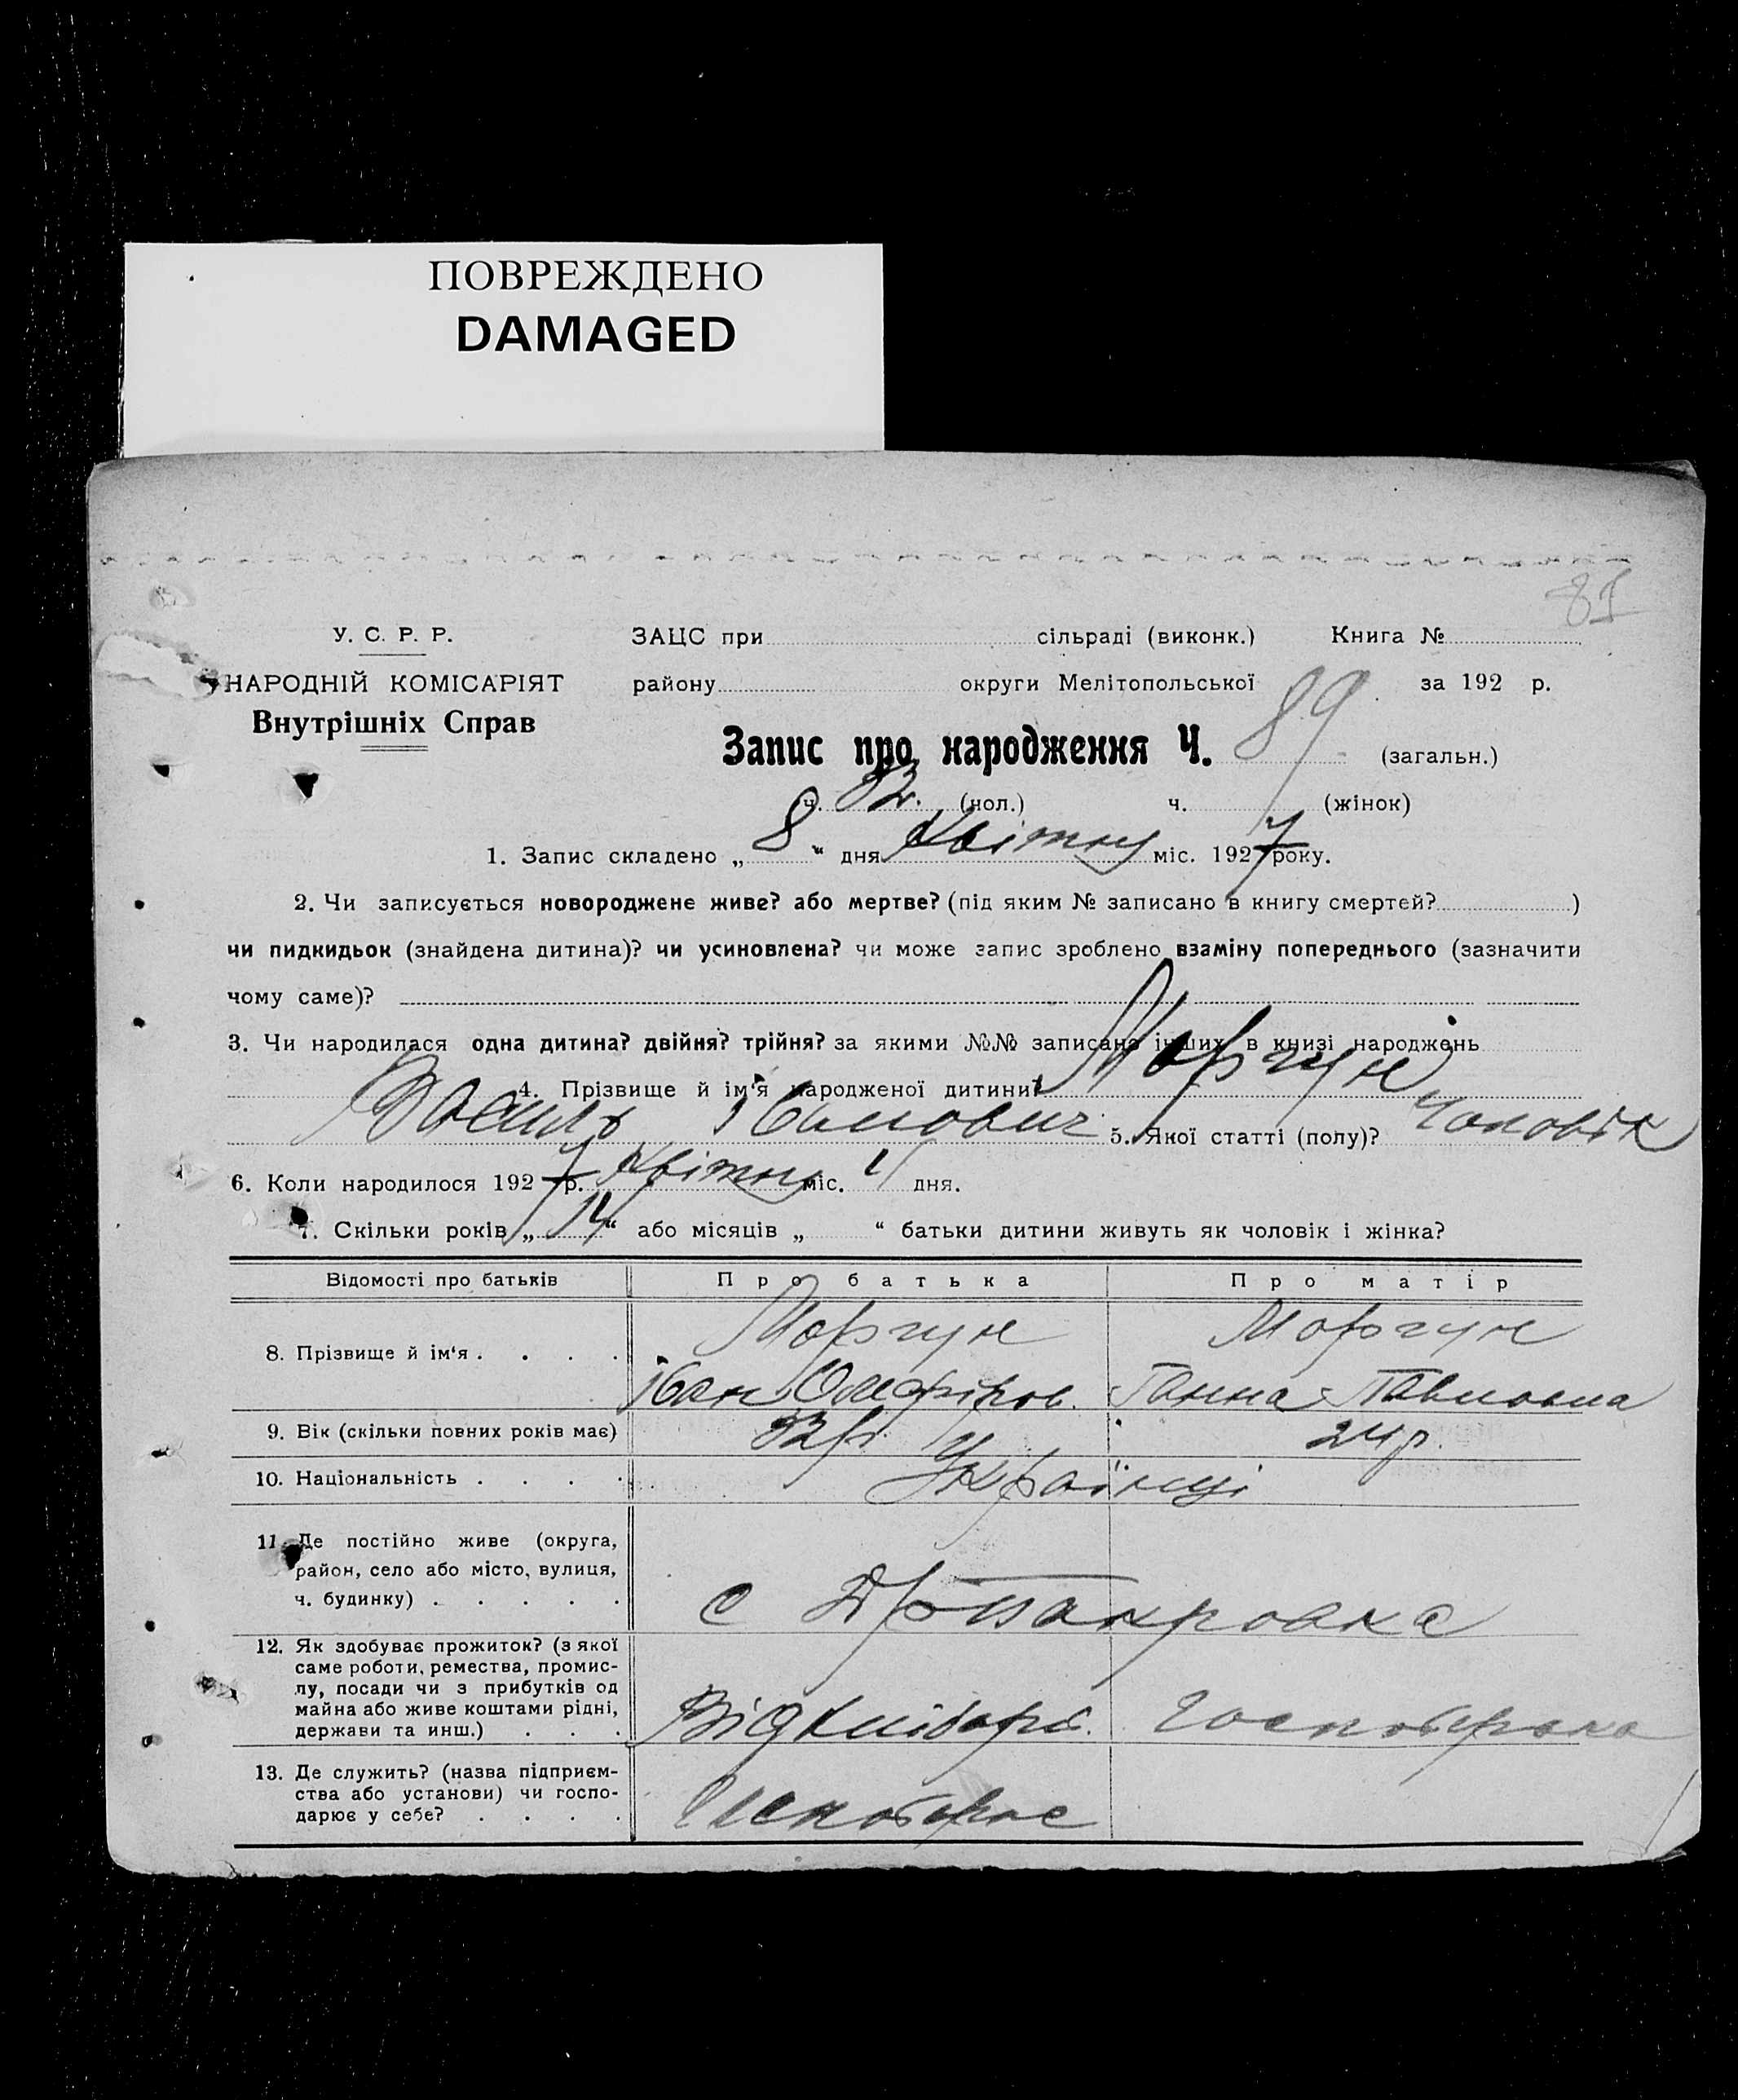 ПОВРЕЖДЕНО
DAMAGED
81
У. С. Р. Р.
ЗАЦС при сільраді (виконк.) Книга №
НАРОДНІЙ КОМІСАРІЯТ
району округи Мелітопольської за 192 р.
Внутрішніх Справ
Запис про народження Ч. 89 (загальн.)
ч. 82. (чол.) ч. (жінок)
1. Запис складено „ 8 “ дня Квітня міс. 1927 року.
2. Чи записується новороджене живе? або мертве? (під яким № записано в книгу смертей? )
чи пидкидьок (знайдена дитина)? чи усиновлена? чи може запис зроблено взаміну попереднього (зазначити
чому саме)?
3. Чи народилася одна дитина? двійня? трійня? за якими №№ записано інших в книзі народжень
4. Прізвище й ім'я народженої дитини? Моргун
Василь Іванович 5. Якої статті (полу)? Чоловік
6. Коли народилося 1927 р. Квітня міс. 1 дня.
7. Скільки років „ 14 “ або місяців „ “ батьки дитини живуть як чоловік і жінка?
Відомості про батьків Про батька Про матір
8. Прізвище й ім'я . . . . Моргун Моргун
Іван Олефіров. Ганна Павловна
9. Вік (скільки повних років має) 32 р. 24 р.
10. Національність . . . . Українці
11. Де постійно живе (округа,
район, село або місто, вулиця,
ч. будинку) . . . . . с
12. Як здобуває прожиток? (з якої
саме роботи, ремества, промис-
лу, посади чи з прибутків од
майна або живе коштами рідні,
держави та инш.) . . .
13. Де служить? (назва підприєм-
ства або установи) чи госпо-
дарює у себе? . . . .